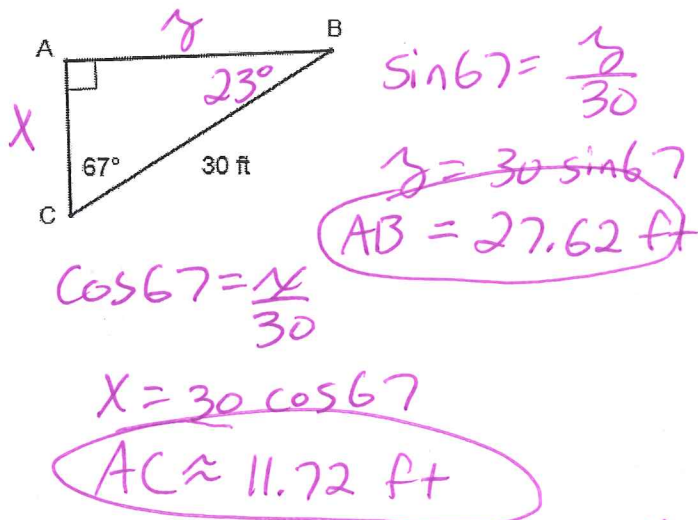 y
A
B
23°
X
67°
30 ft
C
sin67 = y/30
y = 30 sin67
AB = 27.62 ft
cos67 = x/30
X = 30 cos67
AC ≈ 11.72 ft